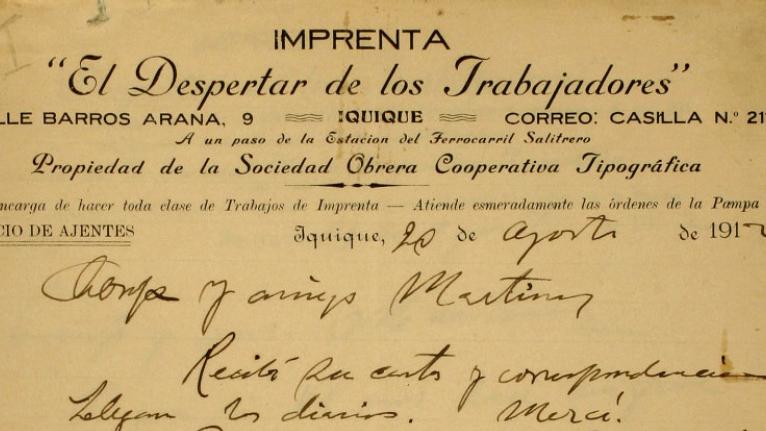 IMPRENTA
"El Despertar de los Trabajadores"
LLE BARROS ARANA, 9 IQUIQUE CORREO: CASILLA N.º 21
A un paso de la Estacion del Ferrocarril Salitrero
Propiedad de la Sociedad Obrera Cooperativa Tipográfica
ncarga de hacer toda clase de Trabajos de Imprenta — Atiende esmeradamente las órdenes de la Pampa
CIO DE AJENTES Iquique, 20 de Agosto de 191
y amigo Martinez
Recibí su carta y correspondencia
Llegan los diarios. Merci.